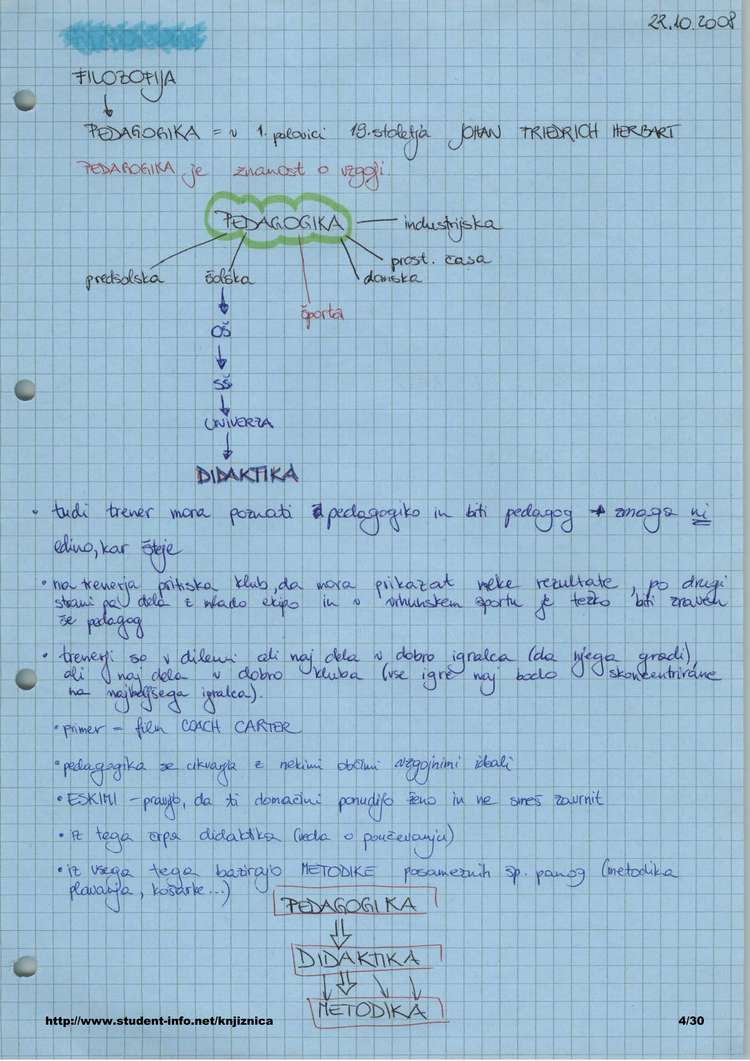 22.10.2008
FILOZOFIJA
PEDAGOGIKA = v 1. polovici 19. stoletja JOHAN FRIEDRICH HERBART
PEDAGOGIKA je znanost o vzgoji.
PEDAGOGIKA
industrijska
prost. časa
predšolska
šolska
domska
športa
OŠ
SŠ
UNIVERZA
DIDAKTIKA
• tudi trener mora poznati pedagogiko in biti pedagog → zmaga ni
edino, kar šteje
• na trenerja pritiska klub, da mora prikazat neke rezultate, po drugi
strani pa dela z mlado ekipo in v vrhunskem športu je težko biti zraven
še pedagog
• trenerji so v dilemi ali naj dela v dobro igralca (da njega gradi),
ali naj dela v dobro kluba (vse igre naj bodo skoncentrirane
na najboljšega igralca).
• primer - film COACH CARTER
• pedagogika se ukvarja z nekimi občimi vzgojnimi ideali
• ESKIMI - pravijo, da ti domačini ponudijo ženo in ne smeš zavrnit
• iz tega črpa didaktika (veda o poučevanju)
• iz vsega tega bazirajo METODIKE posameznih šp. panog (metodika
plavanja, košarke...)
PEDAGOGIKA
DIDAKTIKA
METODIKA
http://www.student-info.net/knjiznica
4/30